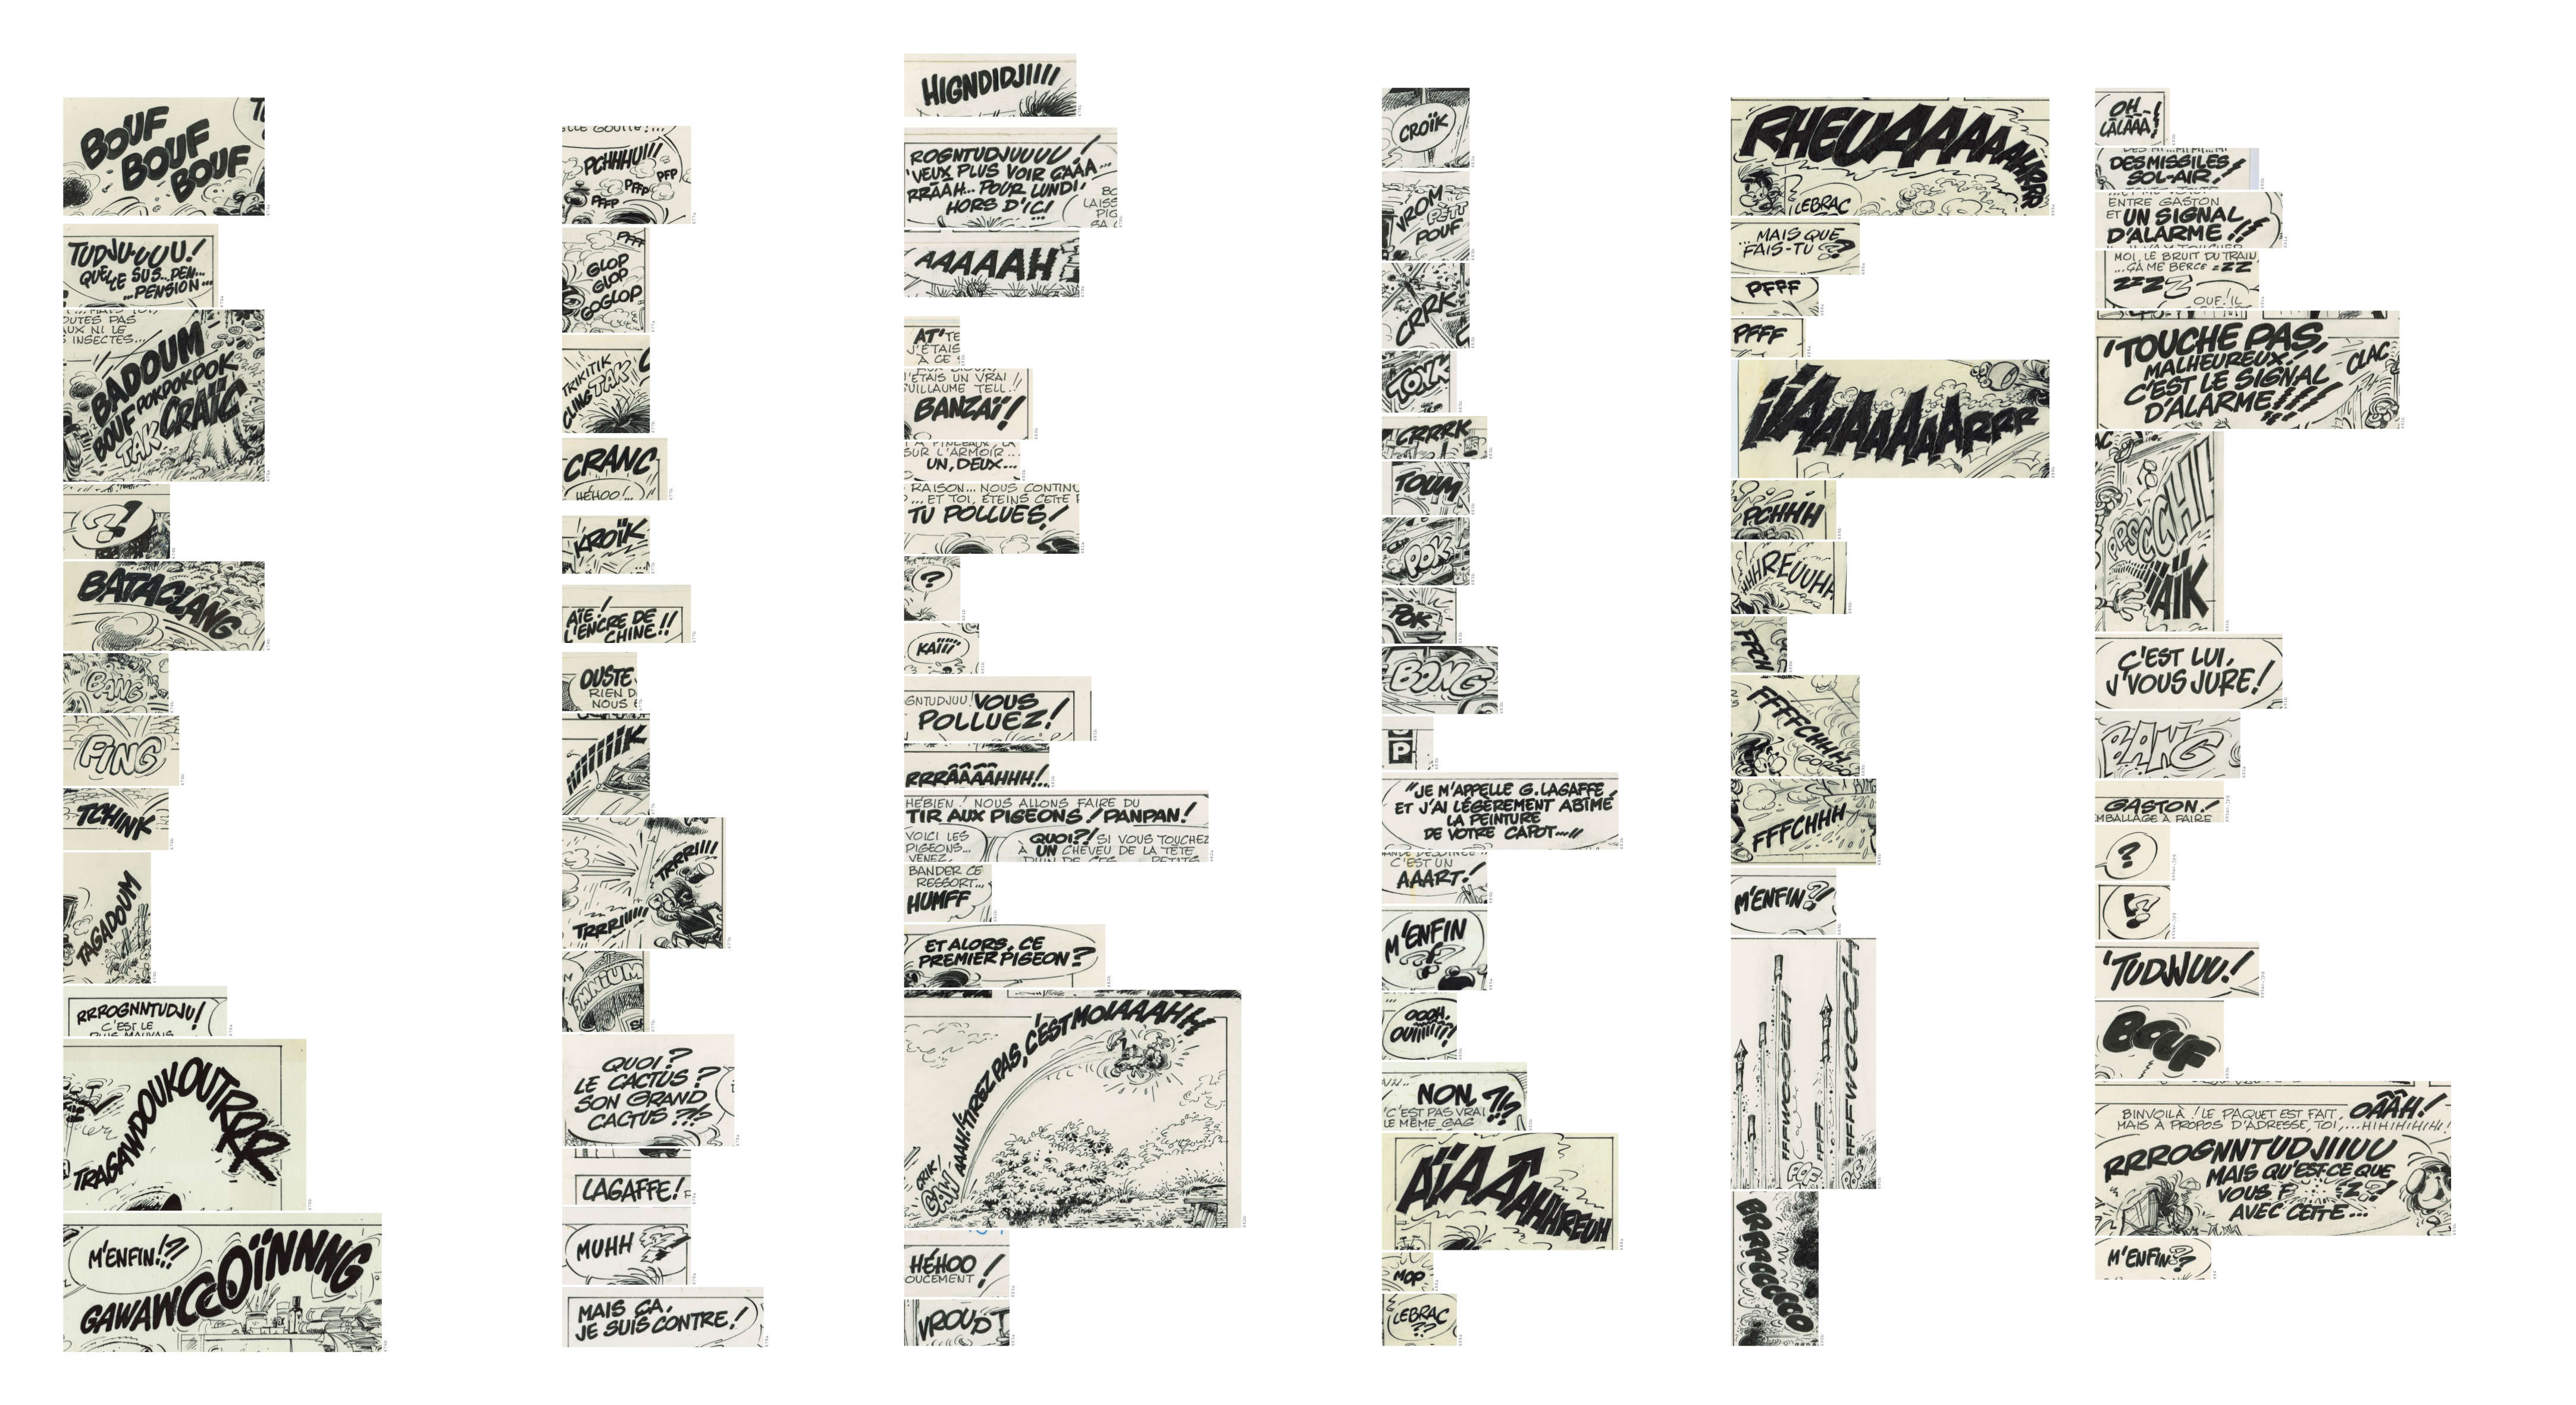 BOUF
BOUF
BOUF
TUDJU-UUU!
QUELLE SUS...PEN...
...PENSION...
OUTES PAS
AUX NI LE
S INSECTES...
BADOUM
BOUF POKPOKPOK
TAK CRAÏC
?!
BATACLANG
BANG
PING
TCHINK
TAGADOUM
RRROGNNTUDJU!
C'EST LE
PLUS MAUVAIS
TRAGAWDOUKOUTRRR
M'ENFIN!?!
GAWAWCCOÏNNNG
LLE GOUTTE!...
PCHHHU!!!
PFFP
PFP
PFFP
PFFF
GLOP
GLOP
GOGLOP
TRIKITIK
CLING TAK
CRANC
HÉHOO!
KROÏK
AÏE!
L'ENCRE DE
CHINE!!
OUSTE
RIEN D
NOUS
IIIIIIK
TRRRIIII
TRRRIIIIII
MNIUM
QUOI?
LE CACTUS?
SON GRAND
CACTUS?!?
LAGAFFE!
MUHH
MAIS ÇA,
JE SUIS CONTRE!
HIGNDIDJIIII
ROGNTUDJUUUU!
'VEUX PLUS VOIR ÇAAA...
RRÂÂH... POUR LUNDI!
HORS D'ICI
...
BO
LAISS
PIG
BA
AAAAAH
AT'TE
J'ÉTAIS
À CE
J'ÉTAIS UN VRAI
GUILLAUME TELL!!
BANZAÏ!
SUR L'ARMOIR...
UN, DEUX...
RAISON... NOUS CONTINU
... ET TOI, ÉTEINS CETTE
TU POLLUES!
?
KAÏÏÏ
GNTUDJUU! VOUS
POLLUEZ!
RRRÂÂÂÂHHH!
HÉBIEN! NOUS ALLONS FAIRE DU
TIR AUX PIGEONS! PANPAN!
VOICI LES
PIGEONS...
VENEZ,
QUOI?! SI VOUS TOUCHEZ
À UN CHEVEU DE LA TÊTE
D'UN DE CES PETITS
BANDER CE
RESSORT...
HUMFF
ET ALORS, CE
PREMIER PIGEON?
CRIK!
GAW!
AAAH! TIREZ PAS, C'EST MOIAAAHH
HÉHOO!
OUCEMENT
VROUDT
CROÏK
VROM
PETT
POUF
CRRK
TOYK
CRRRK
TOUM
POK
POK
BONG
P
"JE M'APPELLE G. LAGAFFE
ET J'AI LÉGÈREMENT ABÎMÉ
LA PEINTURE
DE VOTRE CAPOT~"
ANDE DESSINÉE
C'EST UN
AAART!
M'ENFIN
?!
OOOH,
OUIIIIII!
NON,?!?
C'EST PAS VRAI
LE MÊME GAG
AÏAAAAHHREUH
MOP
LEBRAC
??
RHEUAAAAAAAHRRR
LEBRAC
...MAIS QUE
FAIS-TU?
PFFF
PFFF
IIAAAAAAARRR
PCHHH
HHHREUUHH
FFCH
FFFFCHHH
GORGO
FFFCHHH
M'ENFIN?!
FFFFWOOOCH
POF
FFFFF
FFFFFWOOOCH
POF
BRRROOOOOO
OH
LALÀÀÀ!
DES MISSILES
SOL-AIR!
ENTRE GASTON
ET UN SIGNAL
D'ALARME!!
MOI, LE BRUIT DU TRAIN,
...ÇÀ ME BERCE zZZ
ZZZZ
OUF! IL
'TOUCHE PAS,
MALHEUREUX!
C'EST LE SIGNAL
D'ALARME!!!
CLAC
AC
PPSCCHI!
AÏK
C'EST LUI,
J'VOUS JURE!
BANG
GASTON!
MBALLAGE À FAIRE
?
!?
'TUDJUU!
BOUF
BINVOILÀ! LE PAQUET EST FAIT, OÂÂH!
MAIS À PROPOS D'ADRESSE, TOI,...HIHIHIHIHI!
RRROGNNTUDJIIUU
MAIS QU'EST-CE QUE
VOUS F
AVEC CETTE...
M'ENFIN?!